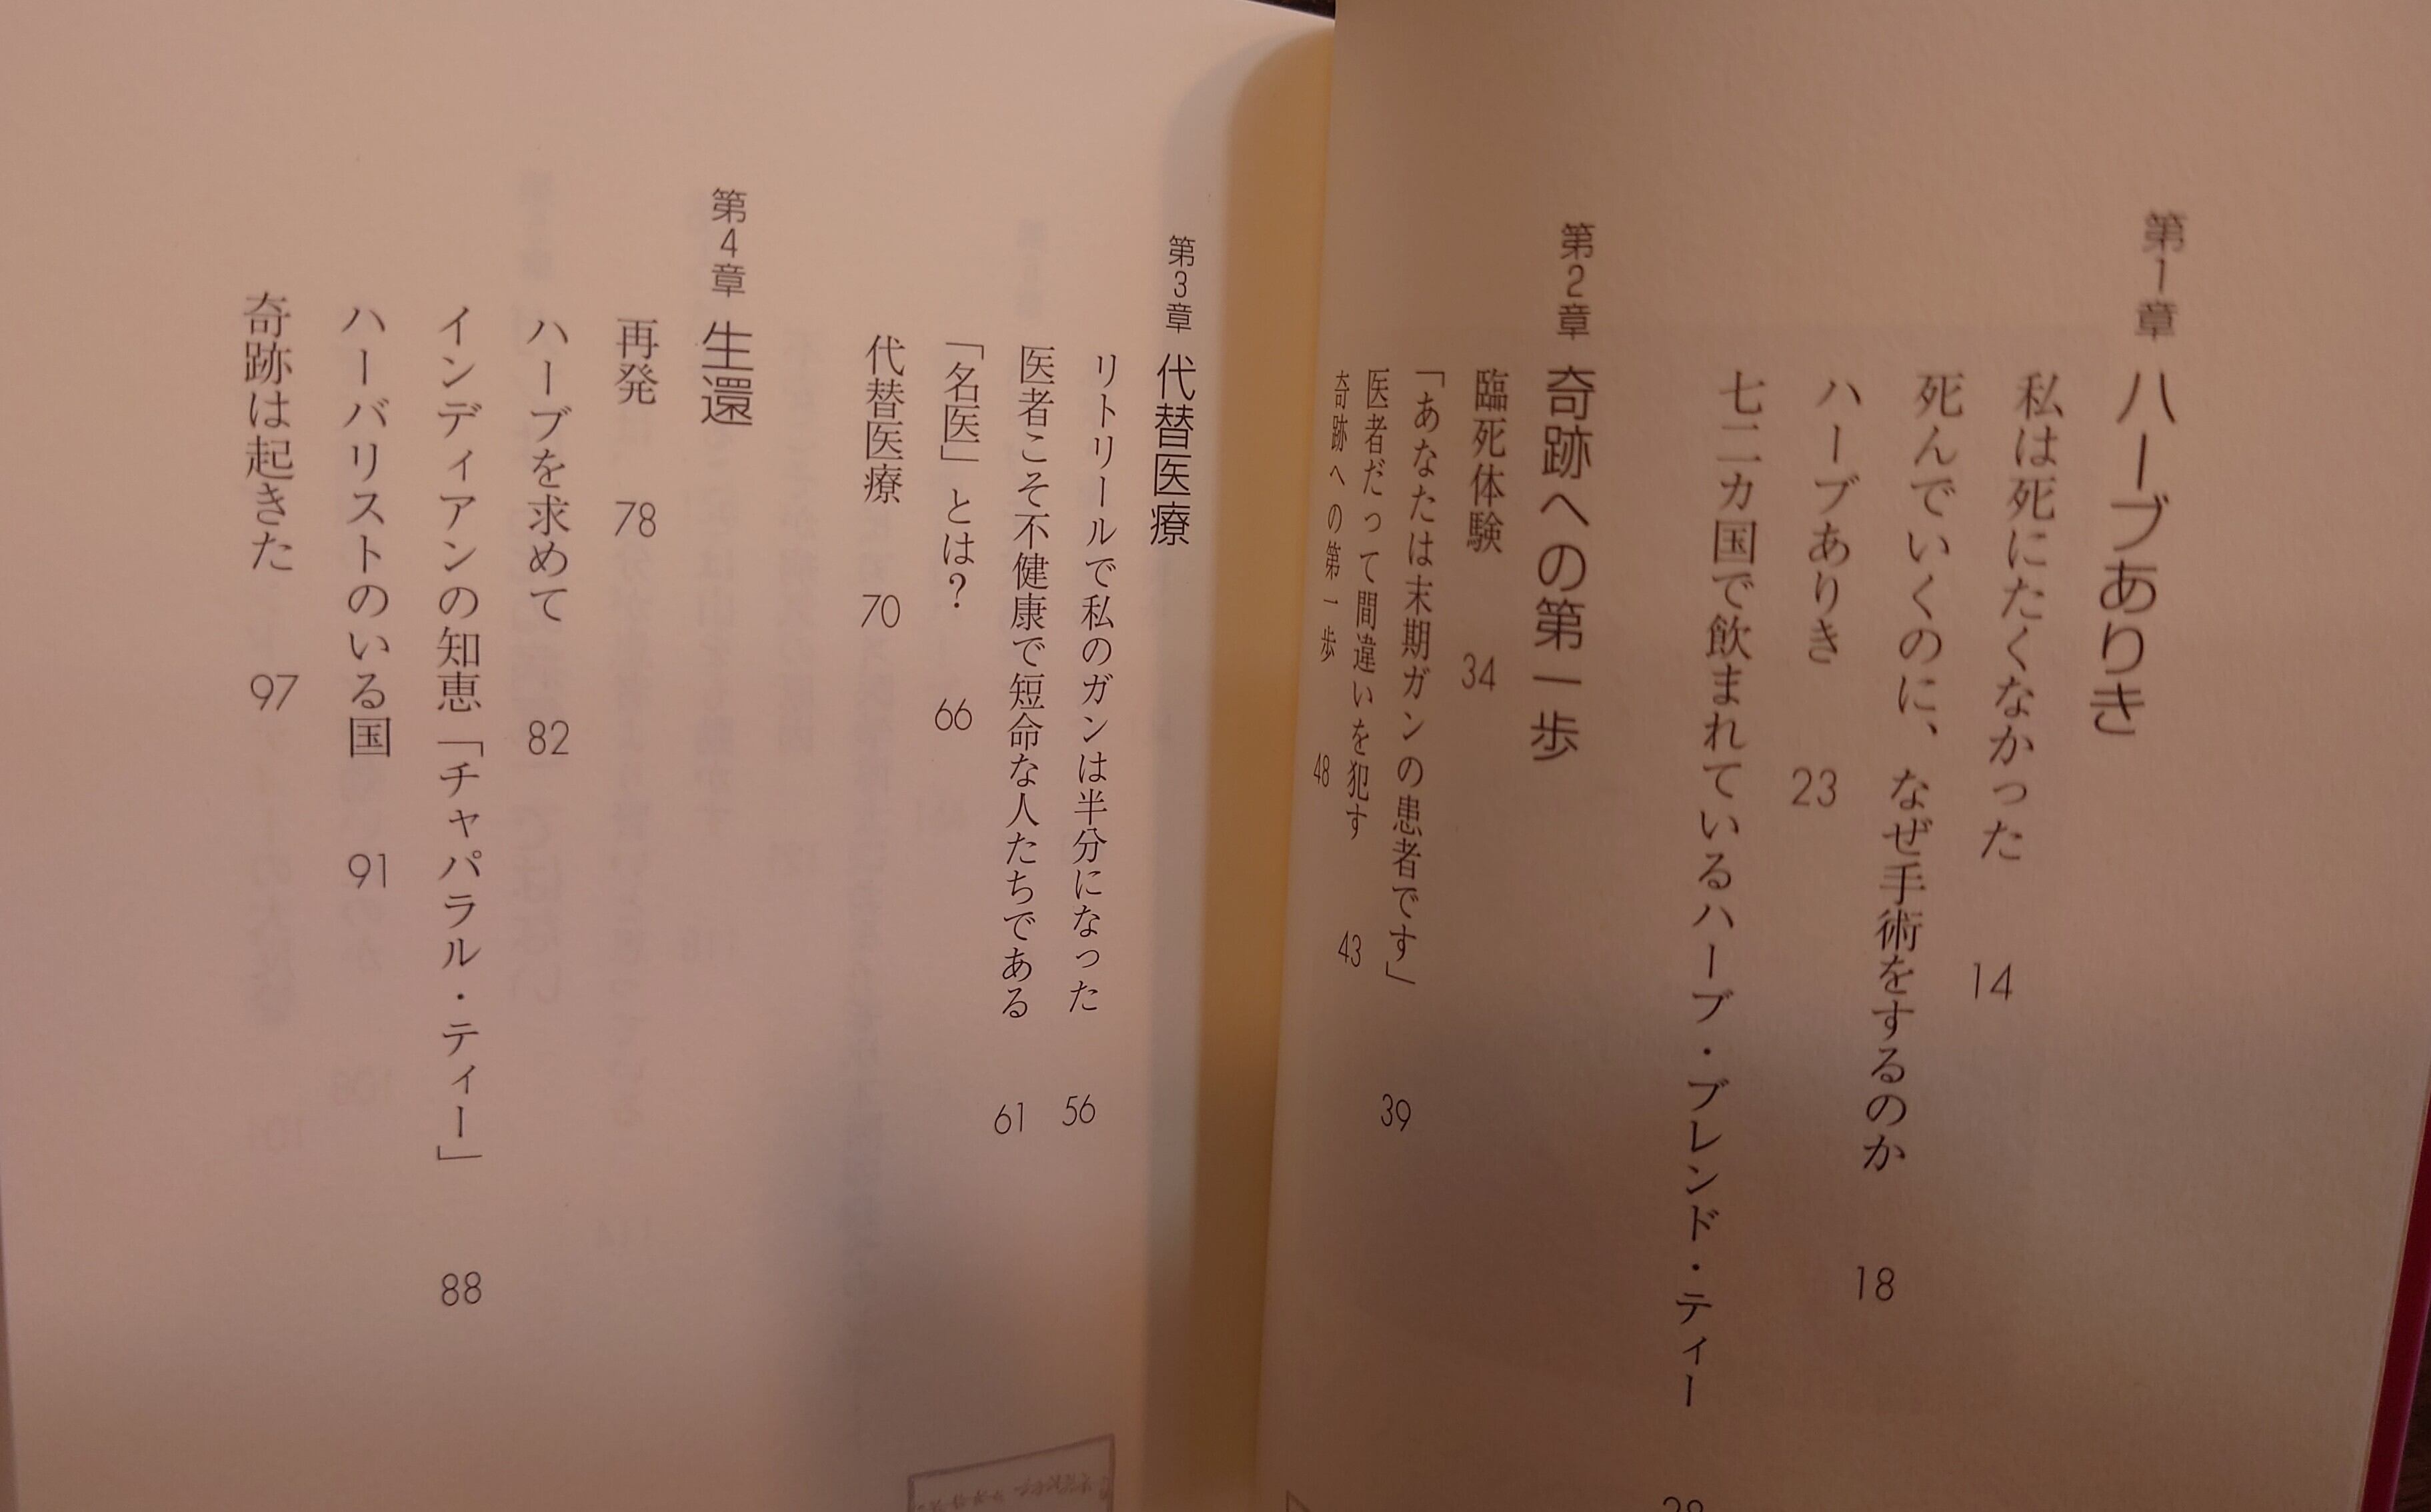 第1章 ハーブありき
私は死にたくなかった 14
死んでいくのに、なぜ手術をするのか 18
ハーブありき 23
七二カ国で飲まれているハーブ・ブレンド・ティー
第2章 奇跡への第一歩
臨死体験 34
「あなたは末期ガンの患者です」 39
医者だって間違いを犯す 43
奇跡への第一歩 48
第3章 代替医療
リトリールで私のガンは半分になった 56
医者こそ不健康で短命な人たちである 61
「名医」とは? 66
代替医療 70
第4章 生還
再発 78
ハーブを求めて 82
インディアンの知恵「チャパラル・ティー」 88
ハーバリストのいる国 91
奇跡は起きた 97